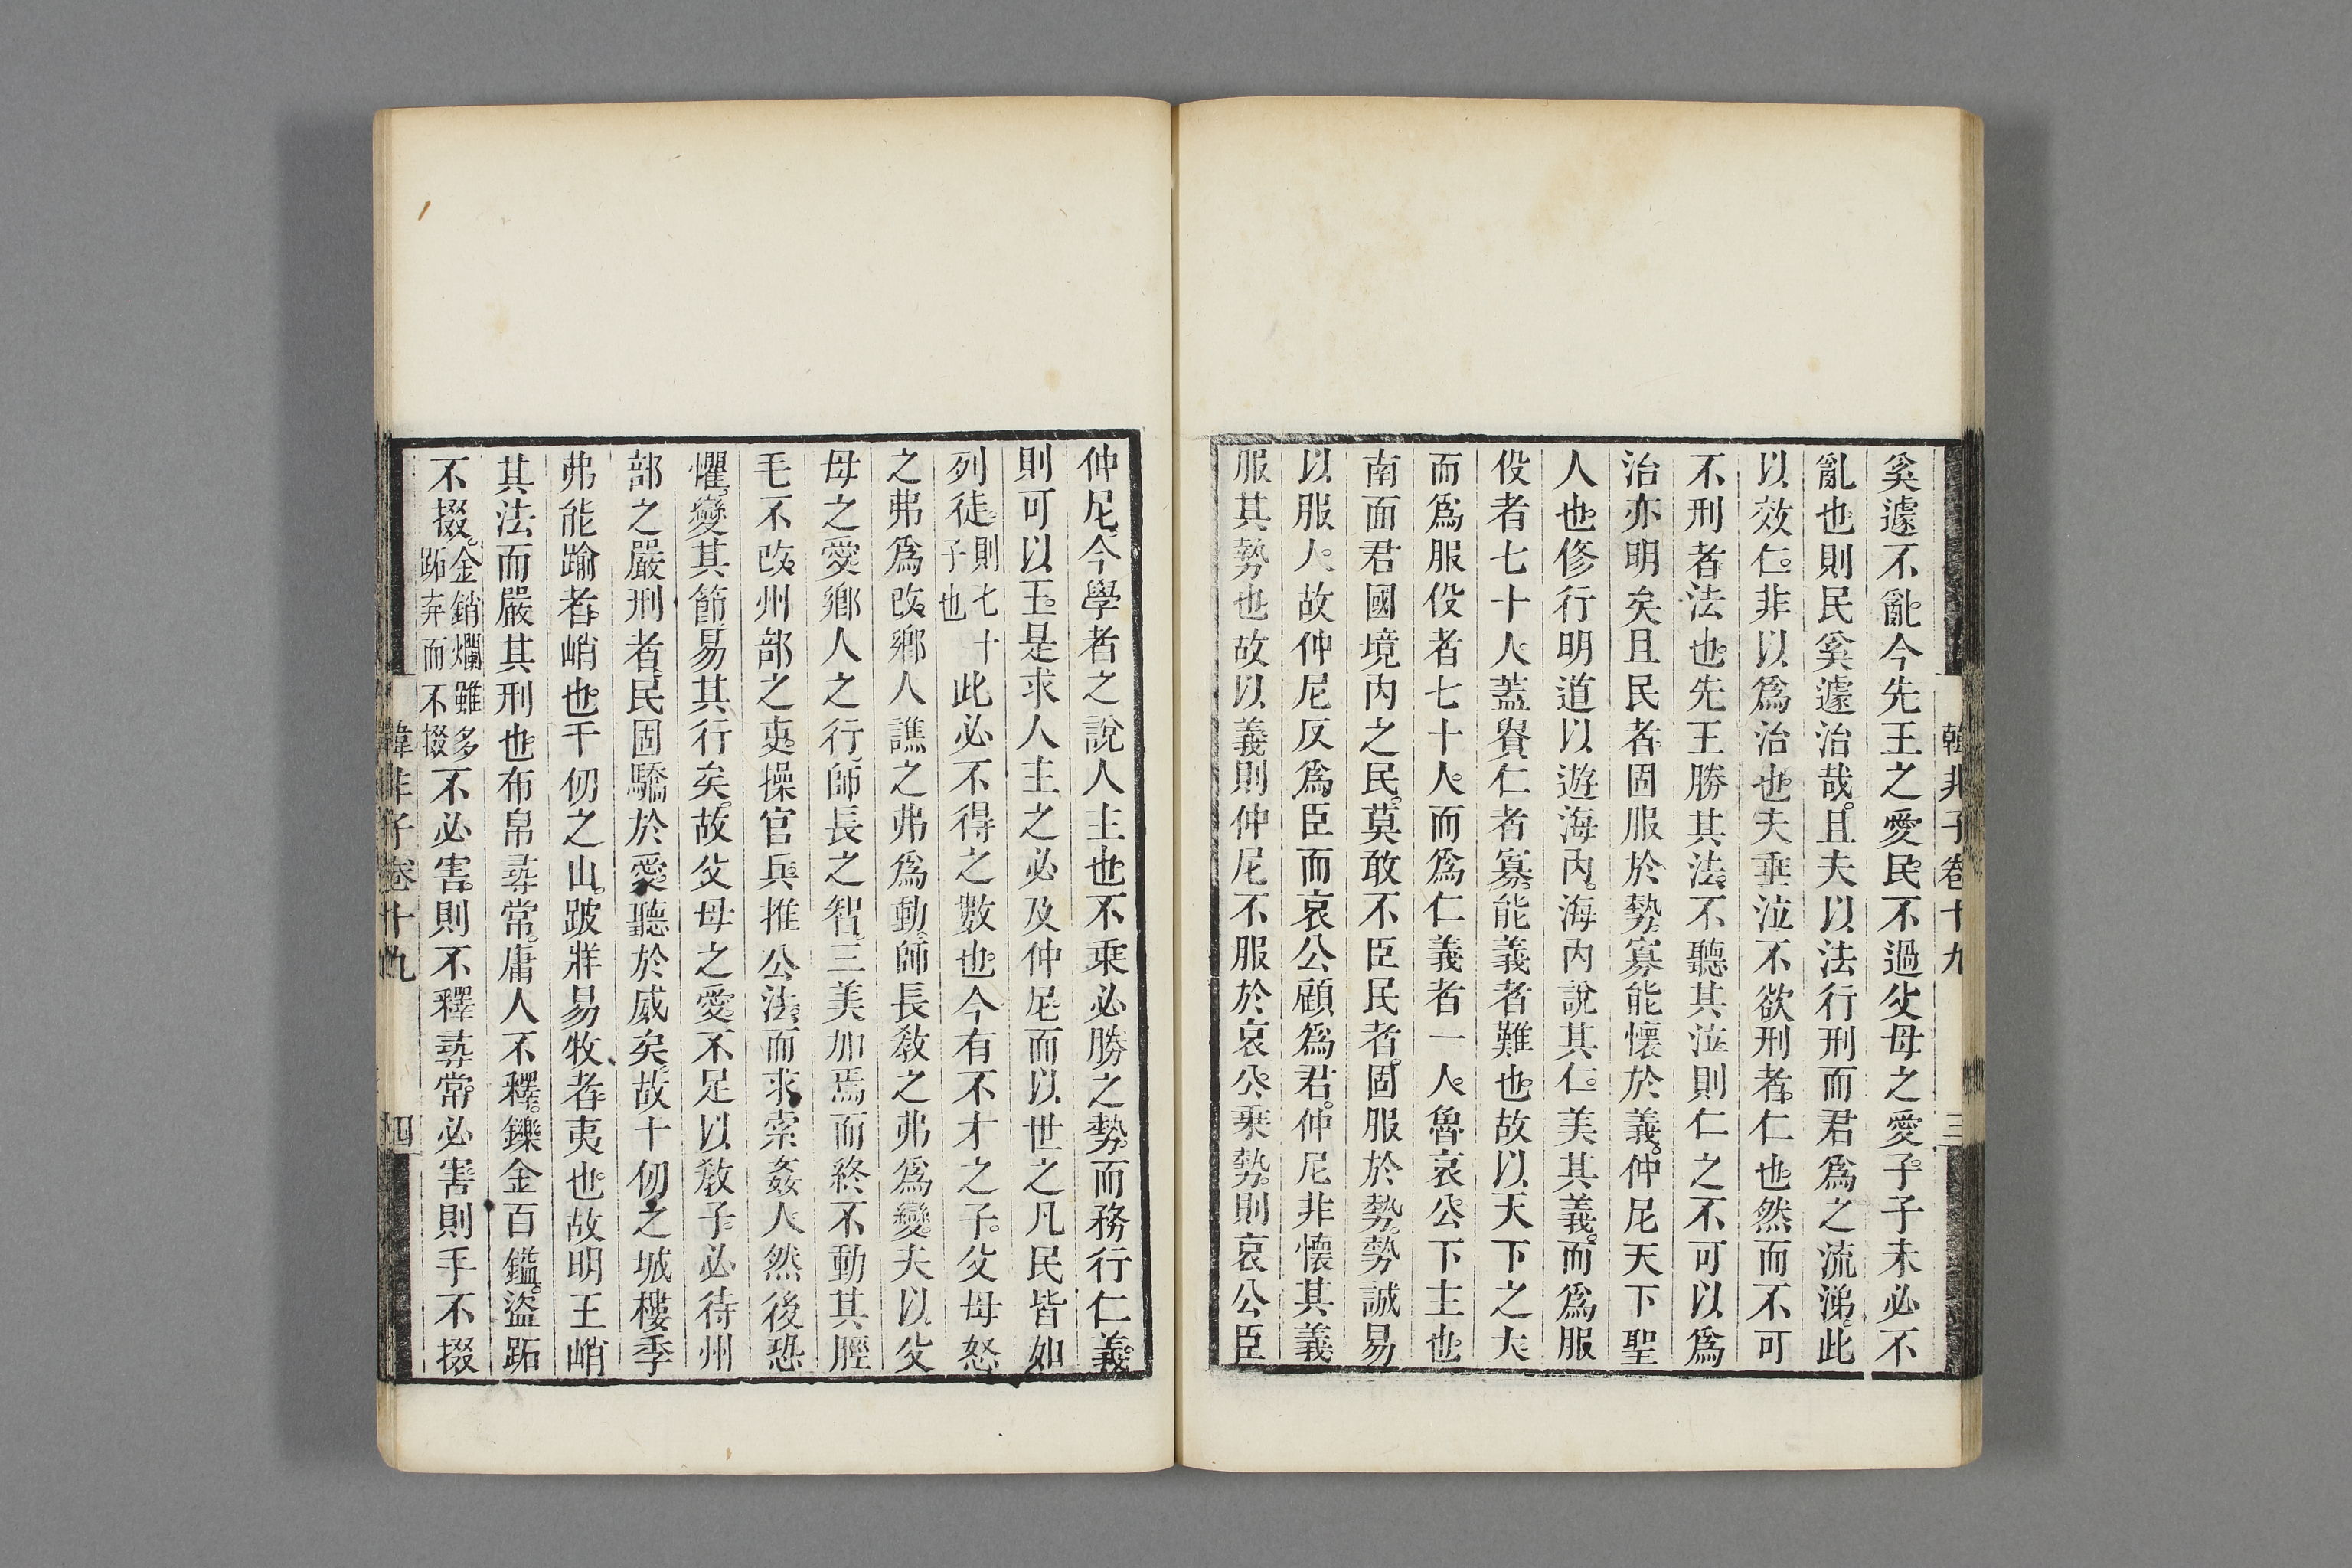 韓非子卷十九
三
奚遽不亂今先王之愛民不過父母之愛子子未必不
亂也則民奚遽治哉且夫以法行刑而君爲之流涕此
以效仁非以爲治也夫垂泣不欲刑者仁也然而不可
不刑者法也先王勝其法不聽其泣則仁之不可以爲
治亦明矣且民者固服於勢寡能懷於義仲尼天下聖
人也修行明道以遊海內海內說其仁美其義而爲服
役者七十人蓋貴仁者寡能義者難也故以天下之大
而爲服役者七十人而爲仁義者一人魯哀公下主也
南面君國境內之民莫敢不臣民者固服於勢勢誠易
以服人故仲尼反爲臣而哀公顧爲君仲尼非懷其義
服其勢也故以義則仲尼不服於哀公乘勢則哀公臣
仲尼今學者之說人主也不乘必勝之勢而務行仁義
則可以王是求人主之必及仲尼而以世之凡民皆如
列徒則七十子也此必不得之數也今有不才之子父母怒
之弗爲改鄉人譙之弗爲動師長教之弗爲變夫以父
母之愛鄉人之行師長之智三美加焉而終不動其脛
毛不改州部之吏操官兵推公法而求索姦人然後恐
懼變其節易其行矣故父母之愛不足以教子必待州
部之嚴刑者民固驕於愛聽於威矣故十仞之城樓季
弗能踰者峭也千仞之山跛牂易牧者夷也故明王峭
其法而嚴其刑也布帛尋常庸人不釋鑠金百鎰盜跖
不掇金銷爛雖多跖弃而不掇不必害則不釋尋常必害則手不掇
韓非子卷十九
四